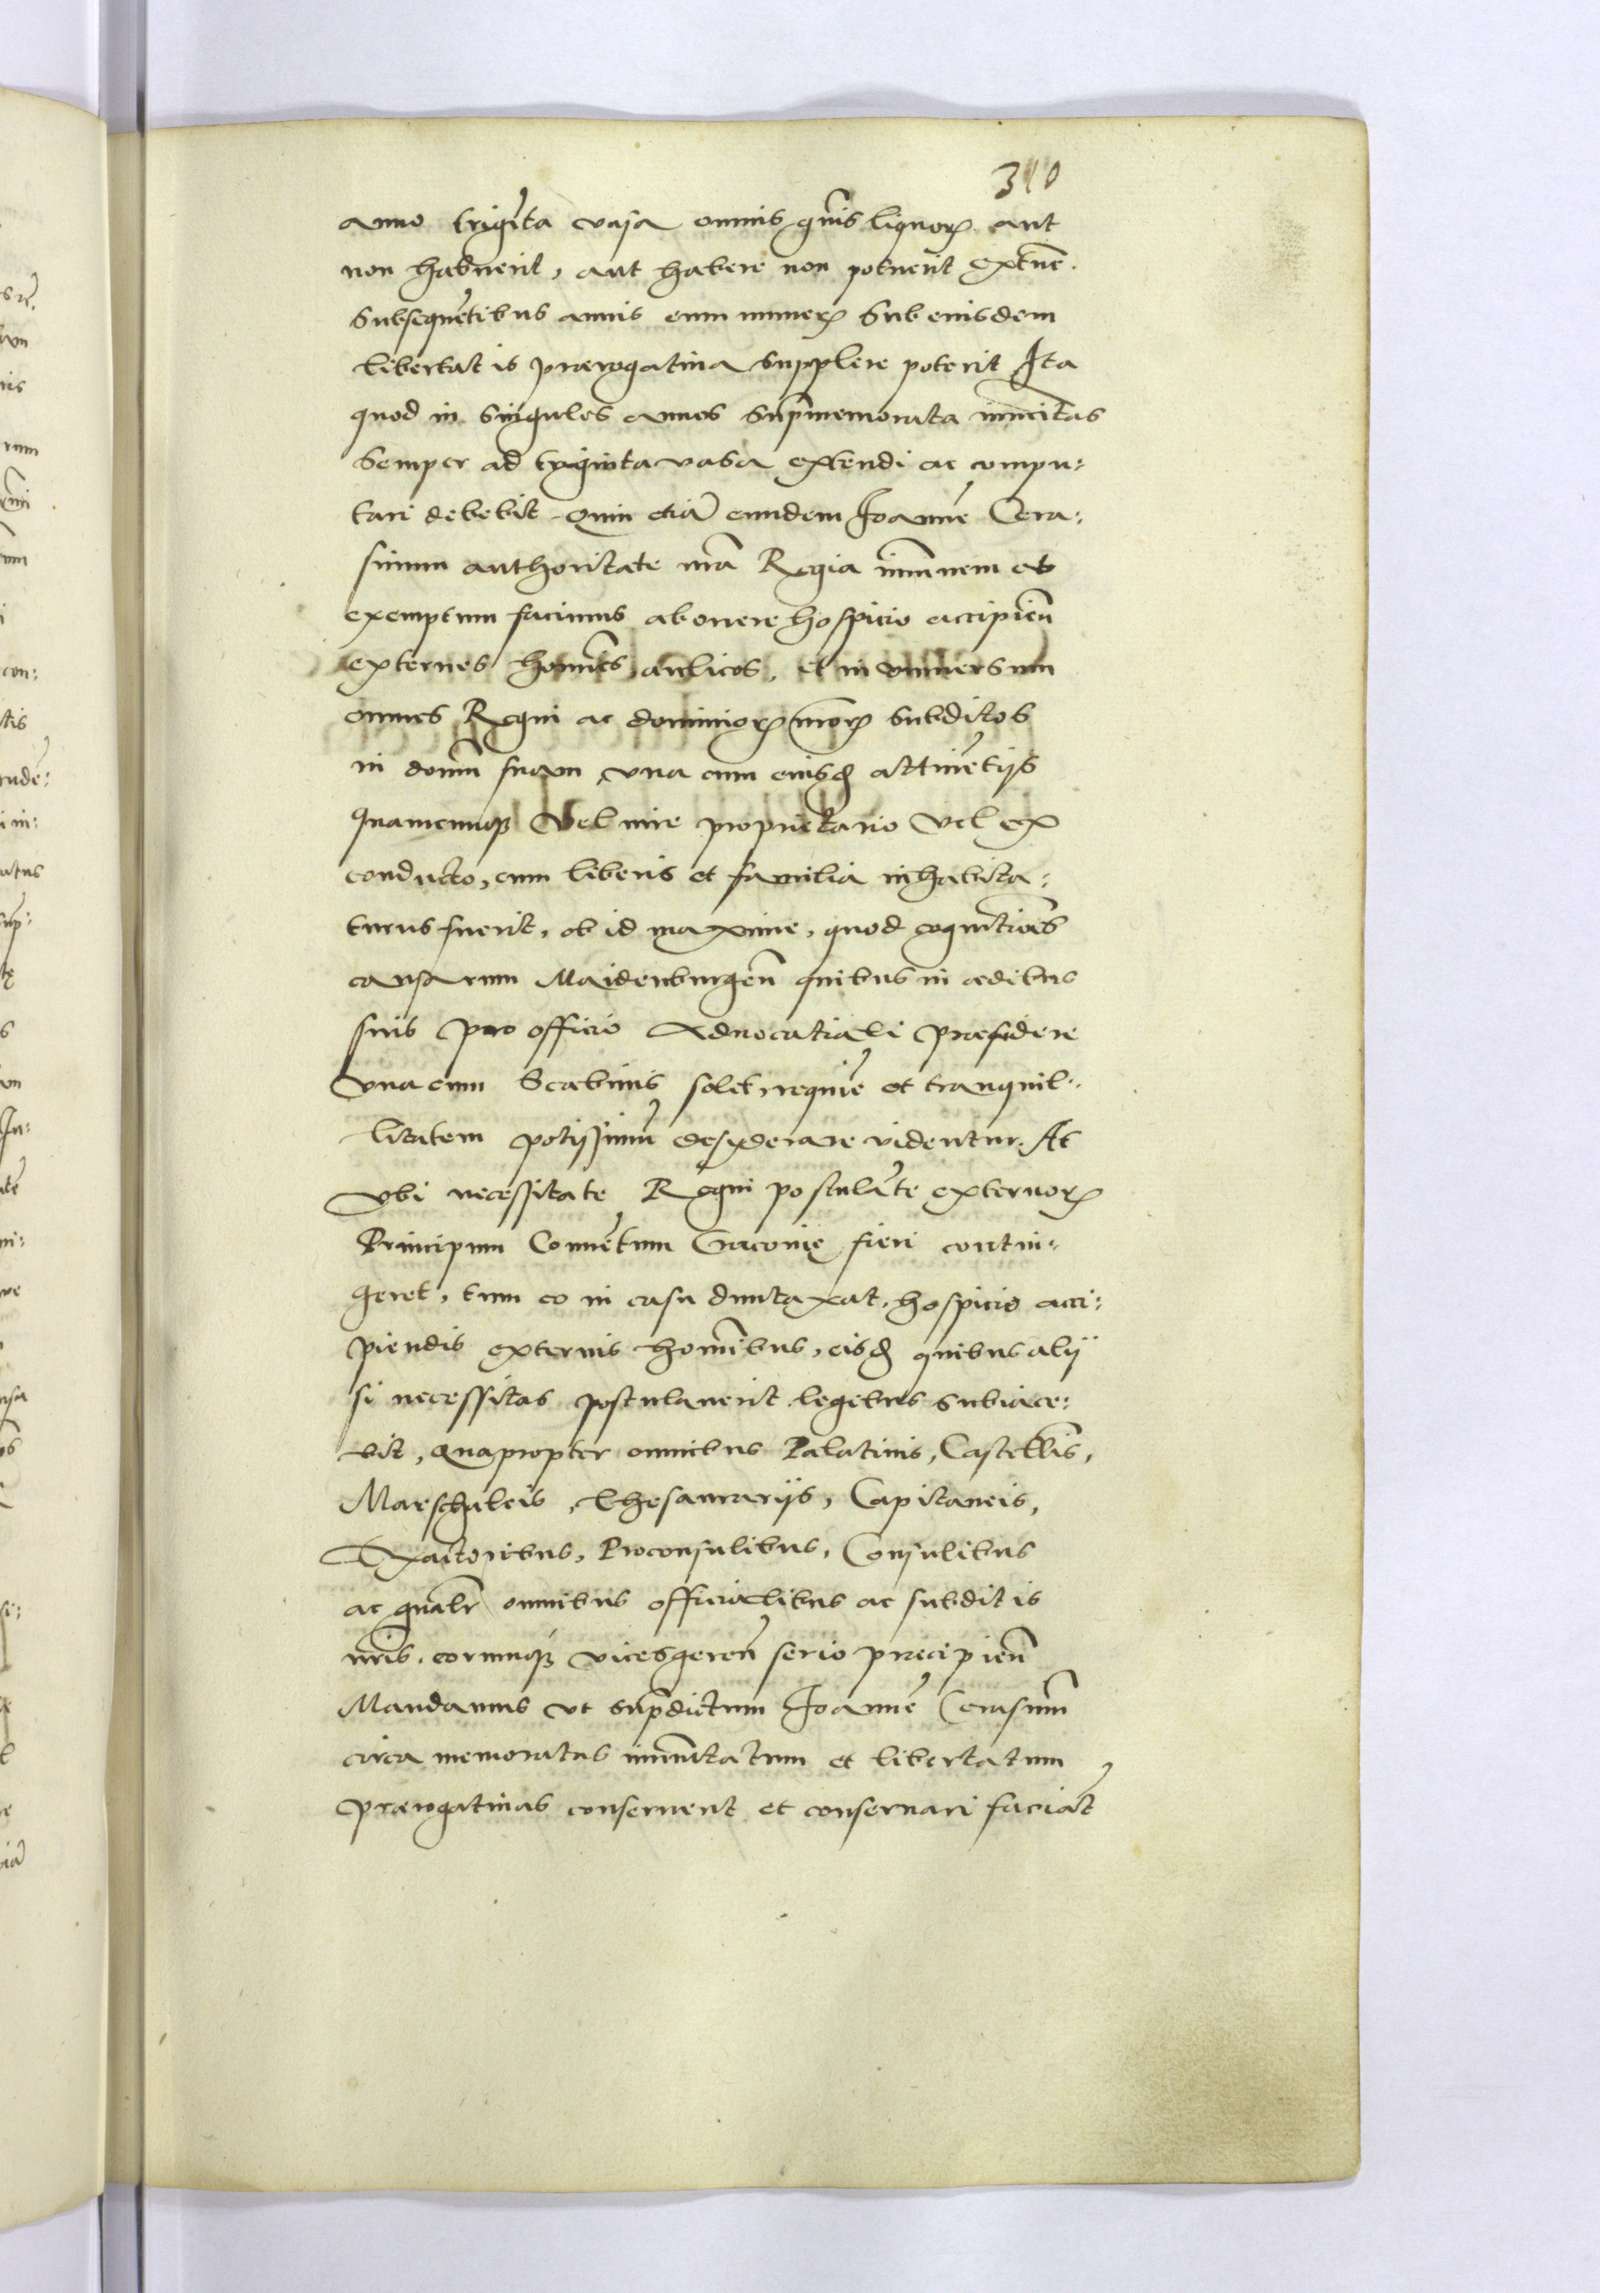 310
anno trigĩta vasa omnis gñis liquorꝝ aut
non habuerit, aut habere non potuerit extunc
subsequẽtibus annis eum numerꝝ sub eiusdem
libertatis prærogatiua supplere poterit Ita
quod in singulos annos sup̃memorata im̃itas
semper ad tryginta vasa extendi ac compu:
tari debebit Quin etiã eundem Joannẽ Cera:
sinum authoritate nr̃a Regia im̃unem et
exemptum facimus ab onere hospicio accipieñ
externos homĩes, aulicos, et in vniuersum
omnes Regni ac dominiorꝝ nr̃orꝝ subditos
in domũ suam vna cum eiusd attinẽtijs
Quamcunqꝫ Vel iure proprietario Vel ex
conducto, cum liberis et familia inhabita:
turus fuerit, ob id maxime, quod cognitiões
causarum Maidenburgeñ quibus in ædibus
suis pro officio Aduocatiali præsidere
vna cum Scabinis solet requiẽ et tranquil:
litatem potissimũ desyderare videntur. At
Vbi necessitate Regni postulãte externorꝝ
Principum Conuẽtum Cracouię fieri contin:
geret, tum eo in casu duntaxat, hospicio acci:
piendis externis homĩbus, eisd quibus alij
si necessitas postulauerit legibus subiace:
bit, Quapropter omnibus Palatinis, Castellñis,
Marschalcis, Thesaurarijs, Capitaneis,
Exactoribus, Proconsulibus, Consulibus
ac gñalr omnibus officialibus ac subditis
nr̃is, eorumqꝫ vicesgereñ serio præcipieñ
Mandamus vt sup̃dictum Joannẽ Cerasinũ
circa memoratas im̃unitatum et libertatum
prærogatiuas conseruent et conseruari faciãt